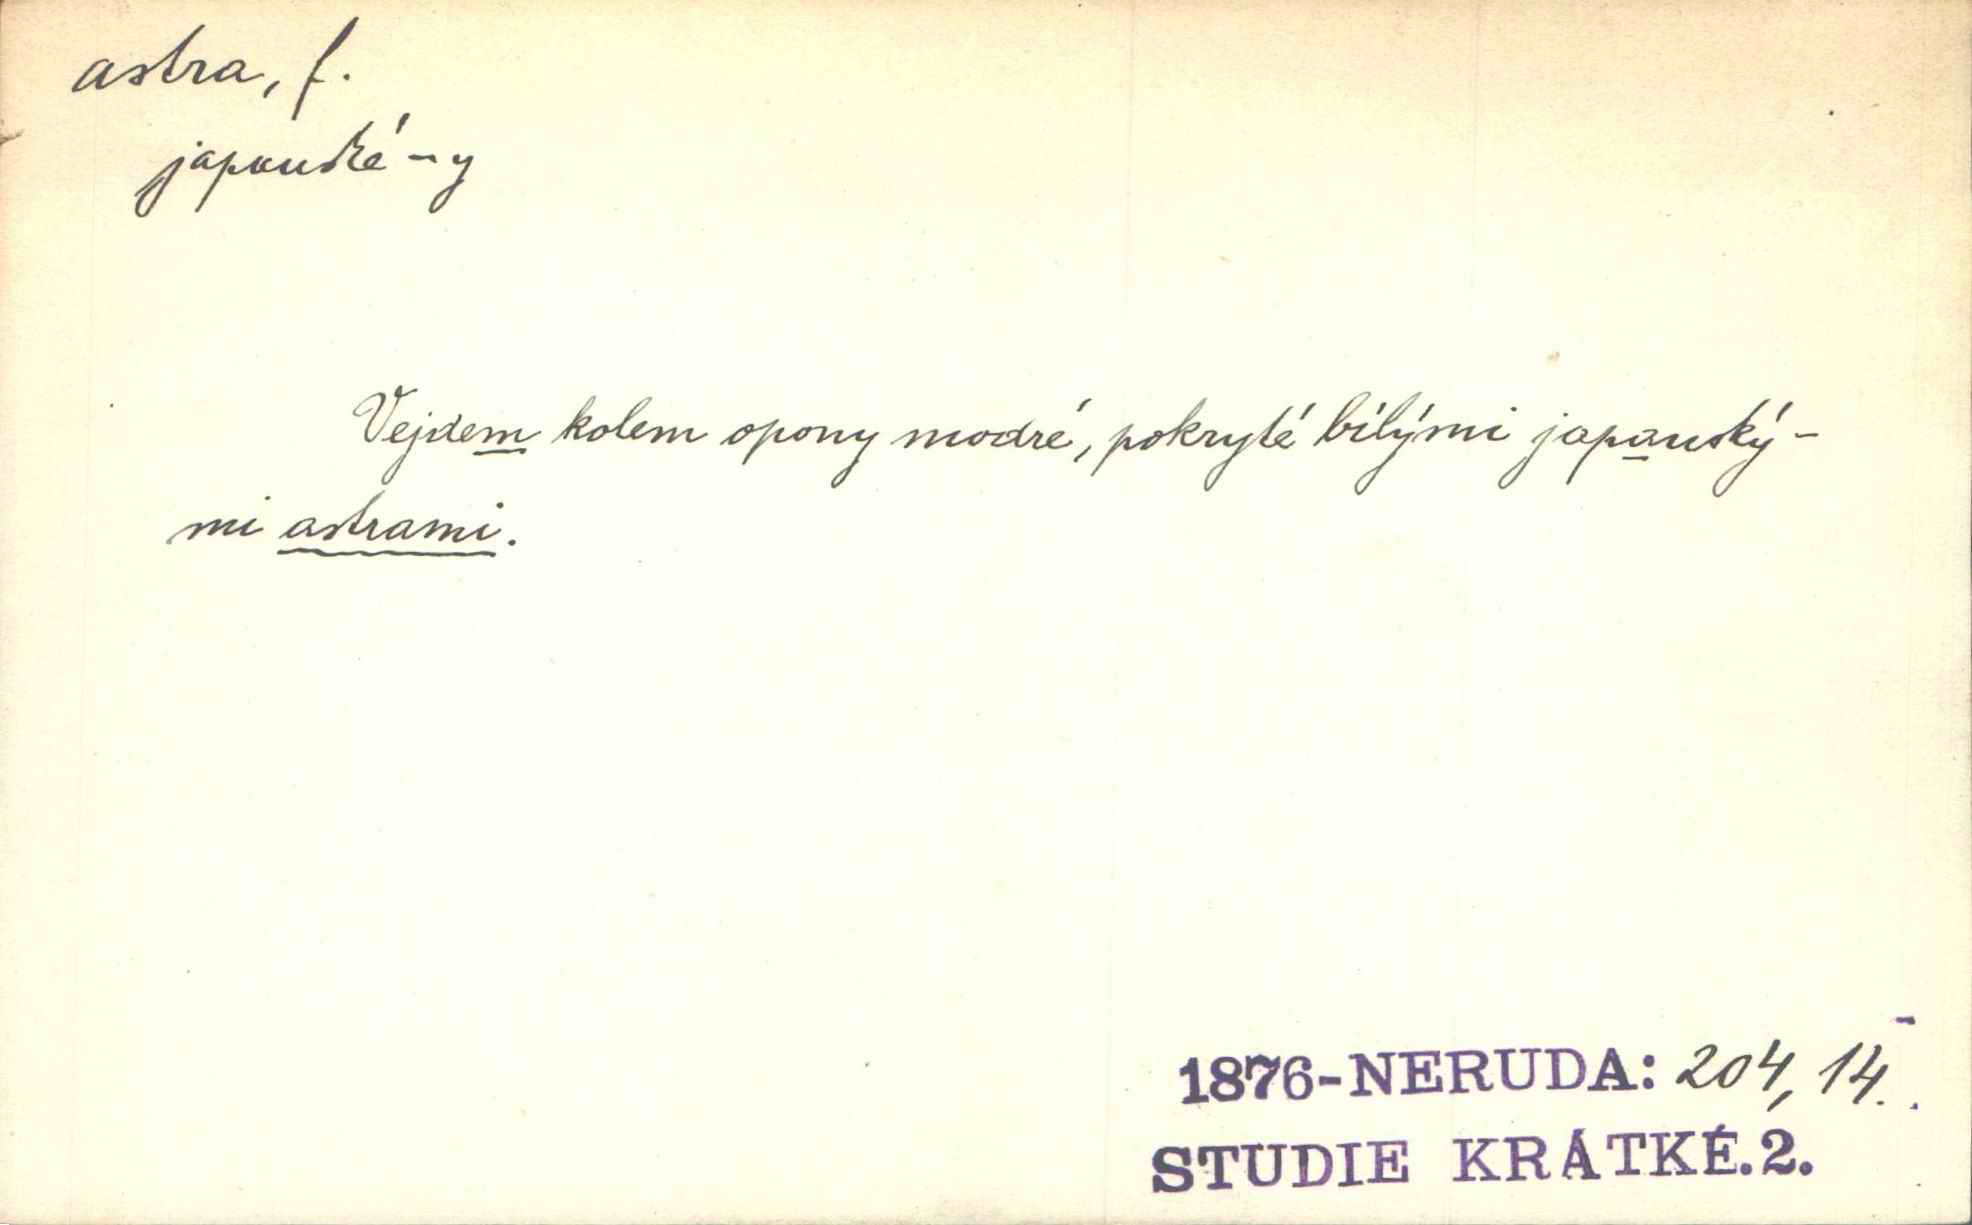 astra, f.
japanské -y
Vejdem kolem opony modré, pokryté bílými japanský-
mi astrami.
1876-NERUDA: 204, 14.
STUDIE KRÁTKÉ.2.